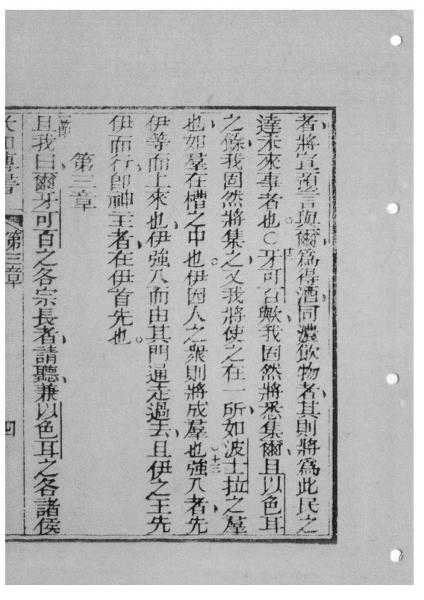 者將宣預言與爾爲得酒同濃飲物者其則將爲此民之
達未來事者也。○牙可百歟我固然將悉集爾且以色耳
之餘我固然將集之又我將使之在一所如波士拉之羣
也如羣在槽之中也。伊因人之衆則將成羣也十三強入者先
伊等而上來也伊強入而由其門通走過去且伊之王先
伊而行卽神主者在伊首先也。
第三章
一節且我曰爾牙可百之各宗長者請聽兼以色耳之各諸侯
第三章
四